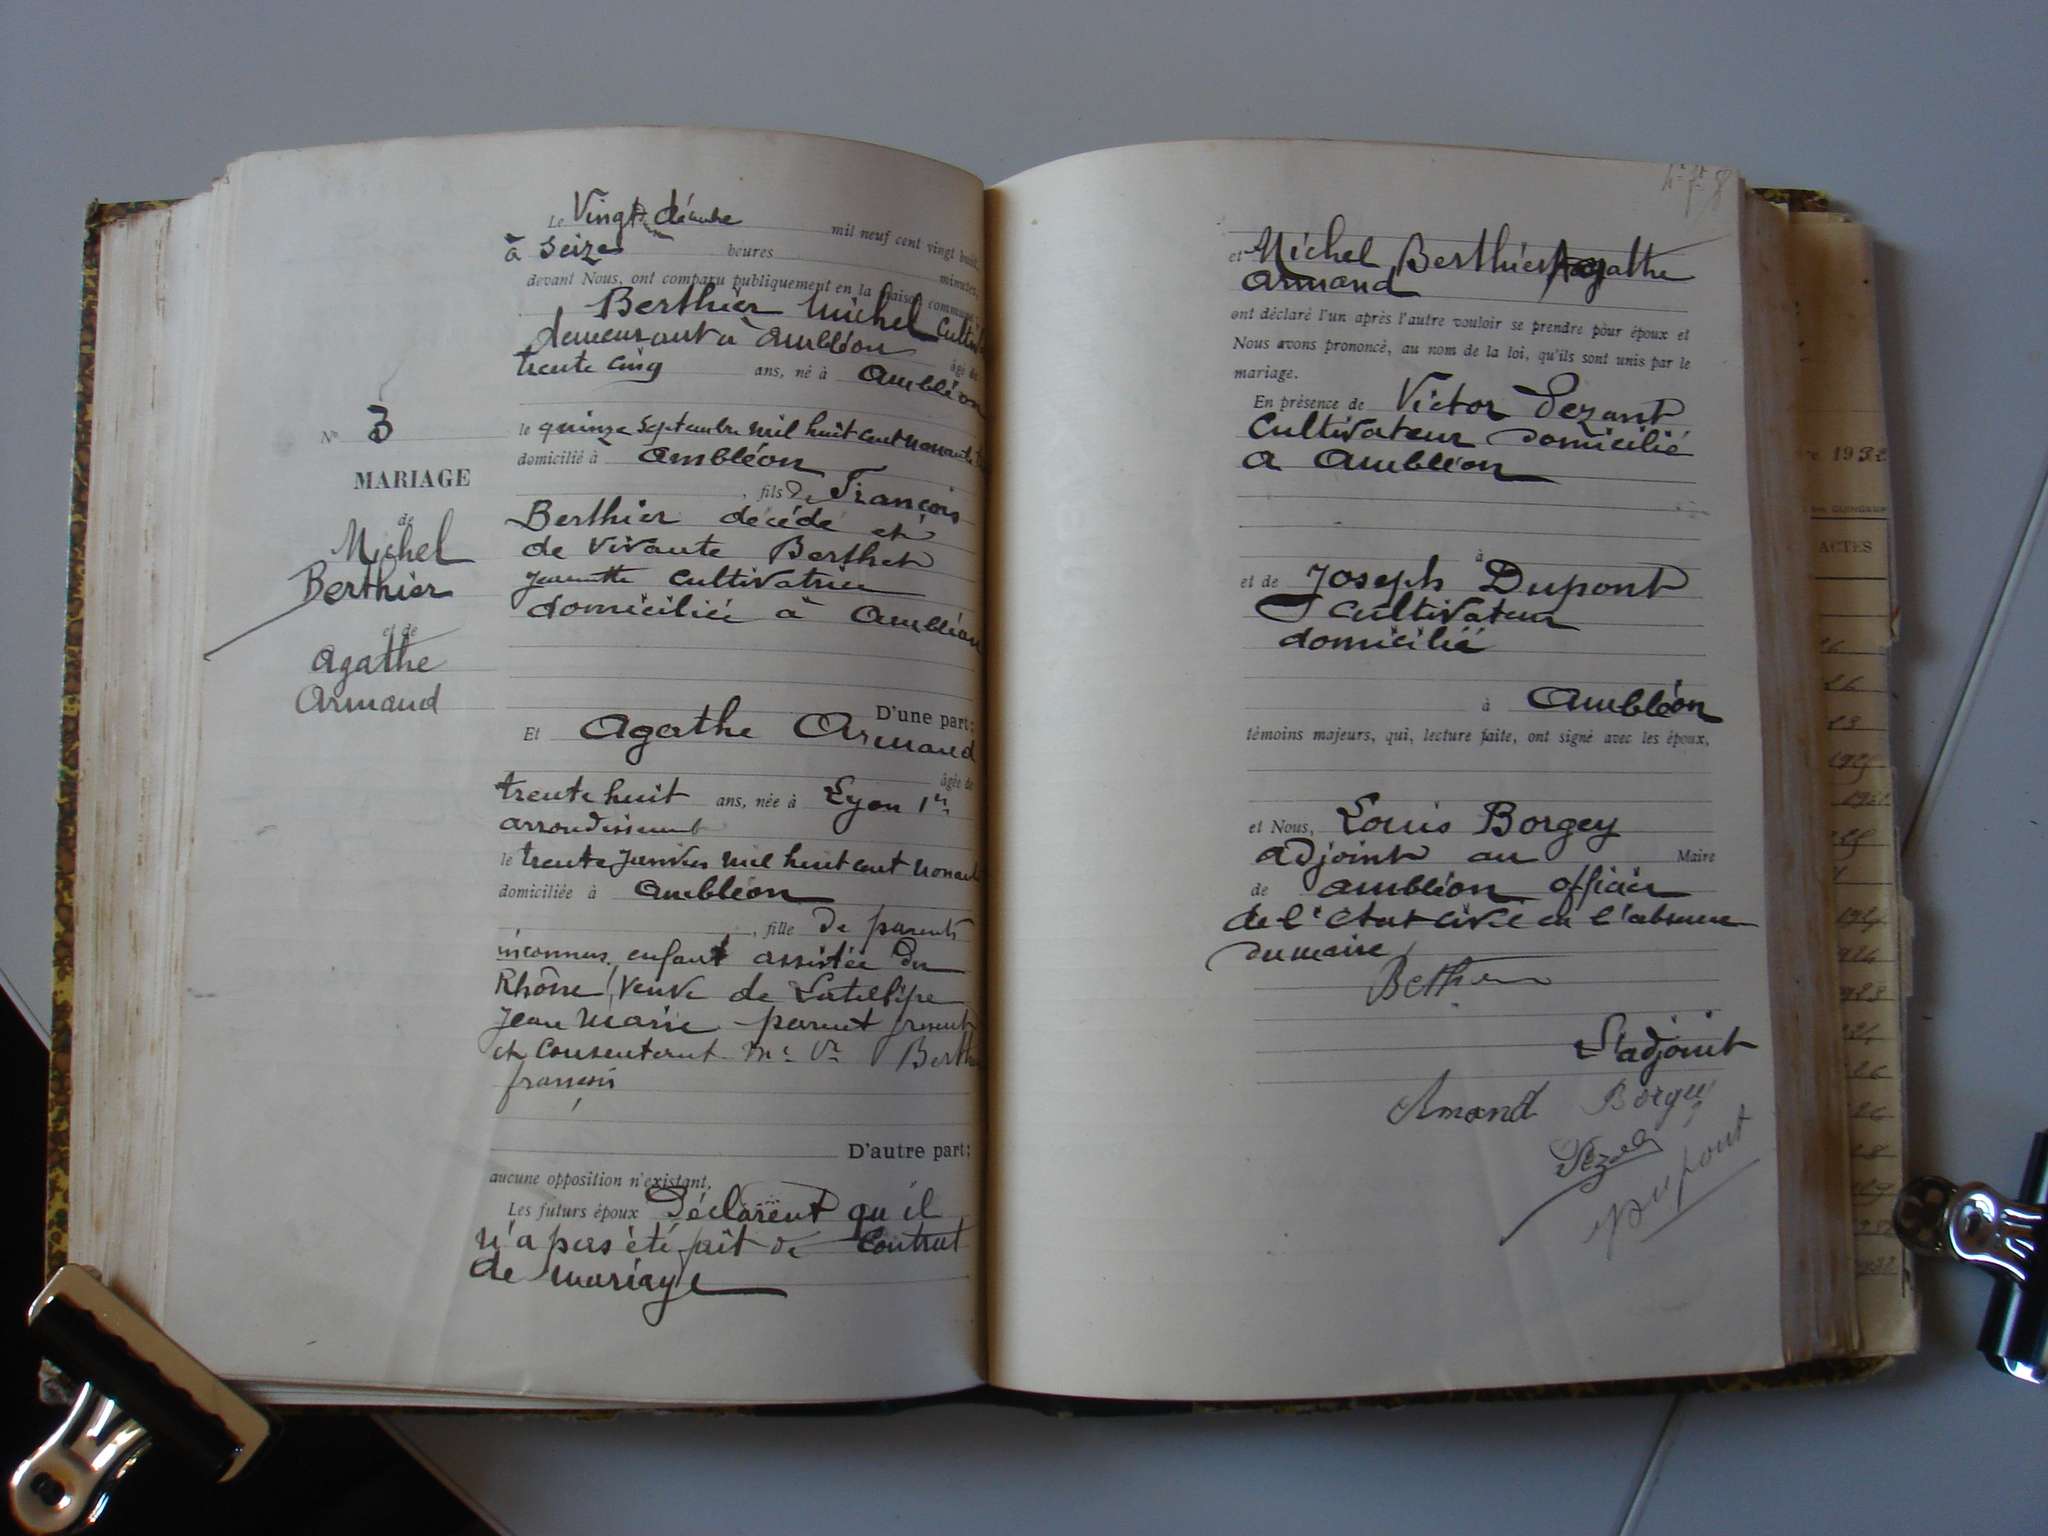 Le Vingt décembre mil neuf cent vingt huit,
à seize heures minutes,
devant Nous, ont comparu publiquement en la maison commune
Berthier Michel Cultiv
demeurant à Ambléon âgé de
trente cinq ans, né à Ambléon
le quinze septembre mil huit cent nonante
domicilié à Ambléon
, fils De François
Berthier décédé et
de vivante Berthet
Jeannette cultivatrice
domiciliée à Ambléon
D'une part;
Et Agathe Armand
âgée de
trente huit ans, née à Lyon 1er
arrondissement
le trente Janvier mil huit cent nonante
domiciliée à Ambléon
, fille De parents
inconnus, enfant assistée du
Rhône, Veuve de
Jean Marie
et Consentant Berth
françois
D'autre part;
aucune opposition n'existant,
Les futurs époux Déclarent qu'il
n'a pas été fait de Contrat
de mariage
N° 3
MARIAGE
de
Michel
Berthier
et de
Agathe
Armand
et Michel Berthier Agathe
Armand
ont déclaré l'un après l'autre vouloir se prendre pour époux et
Nous avons prononcé, au nom de la loi, qu'ils sont unis par le
mariage.
En présence de Victor Dezant
Cultivateur domicilié
à Ambléon
à
et de Joseph Dupont
cultivateur
domicilié
à Ambléon
témoins majeurs, qui, lecture faite, ont signé avec les époux,
et Nous, Louis Borgey
adjoint au Maire
de Ambléon officier
de l'état civil en l'absence
du maire
L'adjoint
Armand Borgey
Dupont
ACTES